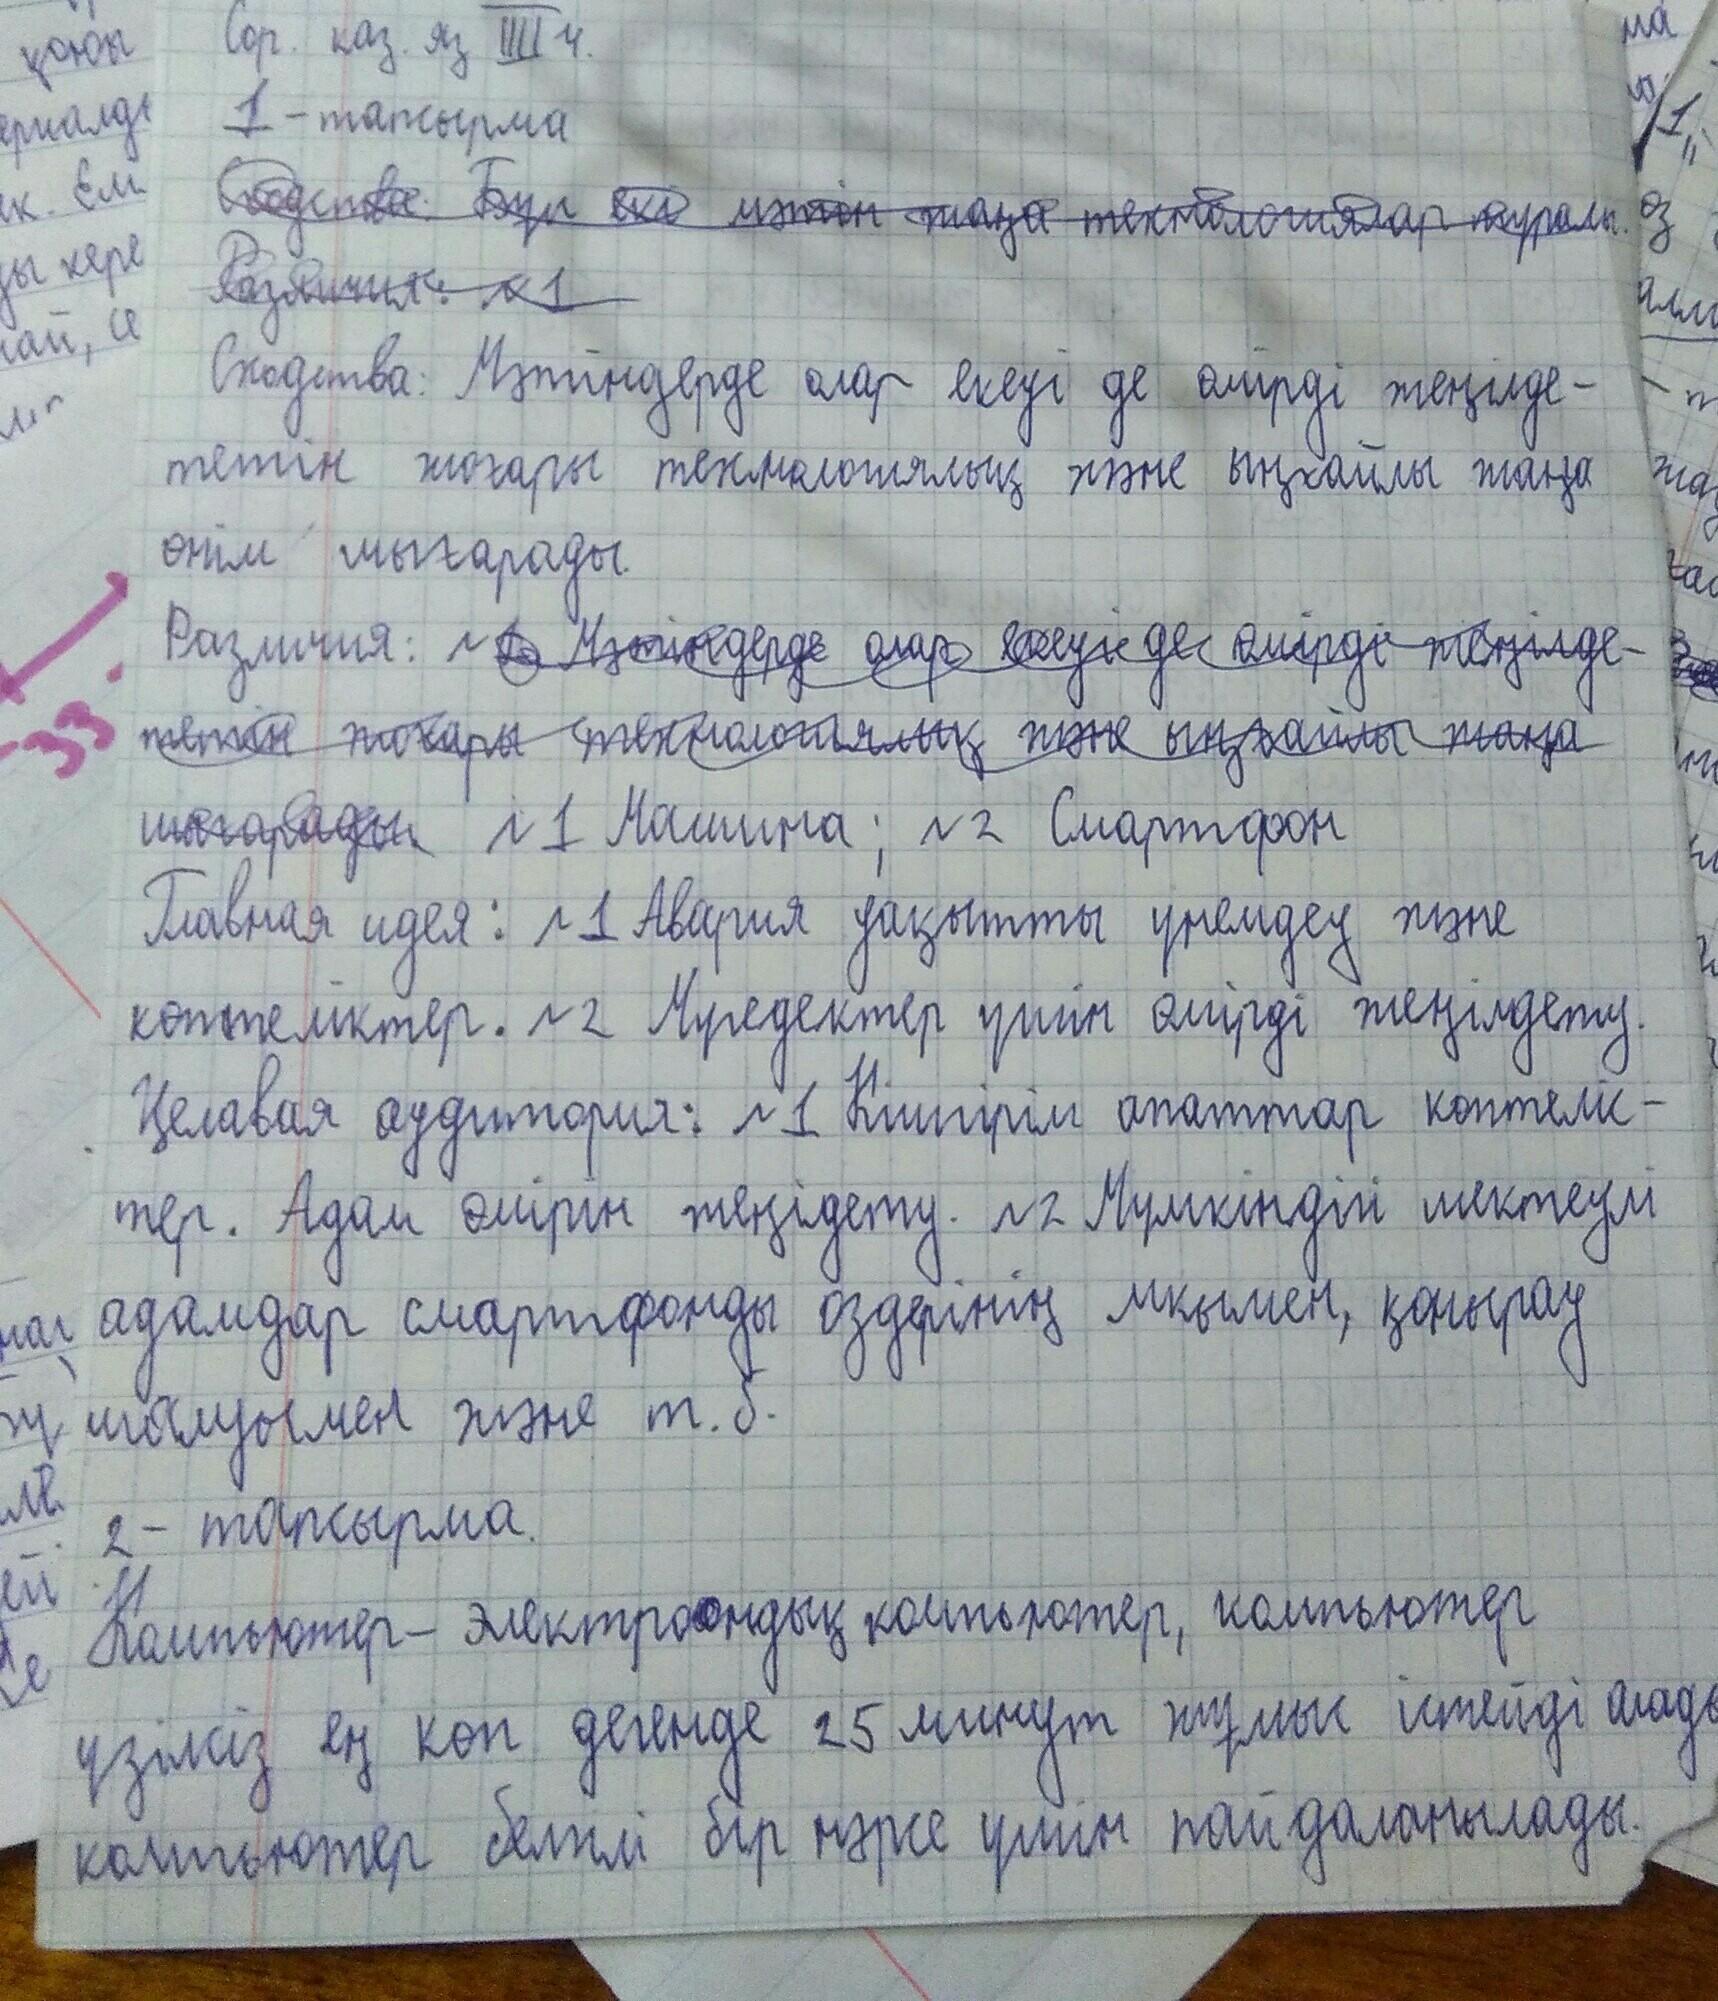 Сор. каз. яз IIII ч.
1 - тапсырма
Сходства: Бұл екі мәтін жаңа технологиялар туралы.
Различия: №1
Сходства: Мәтіндерде олар екеуі де өмірді жеңілде-
тетін жоғары технологиялық және ыңғайлы жаңа
өнім шығарады.
Различия: №1 Мәтіндерде олар екеуі де өмірді жеңілде-
тетін жоғары технологиялық және ыңғайлы жаңа
шығарады. №1 Машина; №2 Смартфон
Главная идея: №1 Авария уақытты үнемдеу және
көптеліктер. №2 Мүгедектер үшін өмірді жеңілдету.
Целавая аудитория: №1 Кішігірім апаттар көптелік-
тер. Адам өмірін жеңідету. №2 Мүмкіндігі шектеулі
адамдар смартфонды өздерінің, қоңырау
шалуымен және т.б.
2 - тапсырма.
Компьютер - электрондық компьютер, компьютер
үзіліссіз ең көп дегенде 25 минут жұмыс істейді алады
компьютер белгілі бір нәрсе үшін пайдаланылады.
33